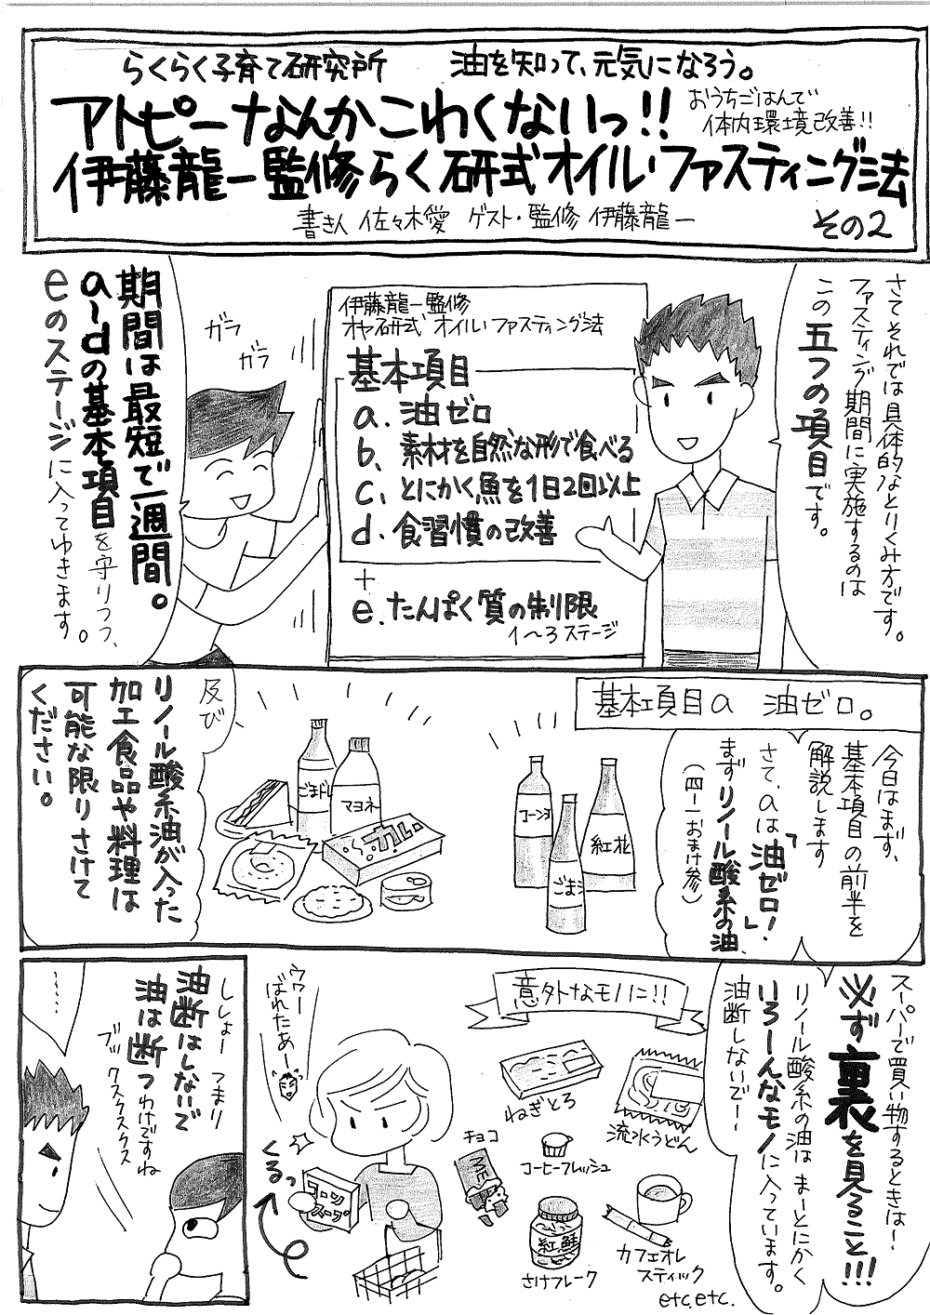 らくらく子育て研究所　油を知って、元気になろう。
アトピーなんかこわくないっ!!
おうちごはんで
体内環境改善!!
伊藤龍一監修らく研式オイル・ファスティング法
書き人 佐々木愛 ゲスト・監修 伊藤龍一
その2
さてそれでは具体的なとりくみ方です。
ファスティング期間に実施するのは
この五つの項目です。
伊藤龍一監修
オヤ研式 オイル・ファスティング法
基本項目
a. 油ゼロ
b、素材を自然な形で食べる
c、とにかく魚を1日2回以上
d. 食習慣の改善
+
e.たんぱく質の制限
1〜3 ステージ
ガラ
ガラ
期間は最短で一週間。
a〜dの基本項目を守りつつ、
eのステージに入ってゆきます。
基本項目a 油ゼロ。
今日はまず、
基本項目の前半を
解説します
さて、aは「油ゼロ！」
まずリノール酸系の油、
(四-一おまけ参)
コーン油
ごま油
紅花
及び
リノール酸系油が入った
加工食品や料理は
可能な限りさけて
ください。
ごまド
マヨネ
カレー
スーパーで買い物するときは〜
必ず裏を見ること!!!
リノール酸系の油は まーとにかく
いろーんなモノに入っています。
油断しないで〜
意外なモノに!!
ねぎとろ
流水うどん
チョコ
コーヒーフレッシュ
紅鮭
さけフレーク
カフェオレ
スティック
etc,etc.
ウゥー
ばれたあー
くるっ
コーン
スープ
ししょー つまり
油断はしないで
油は断つわけですね
プッ クスクスクス
……